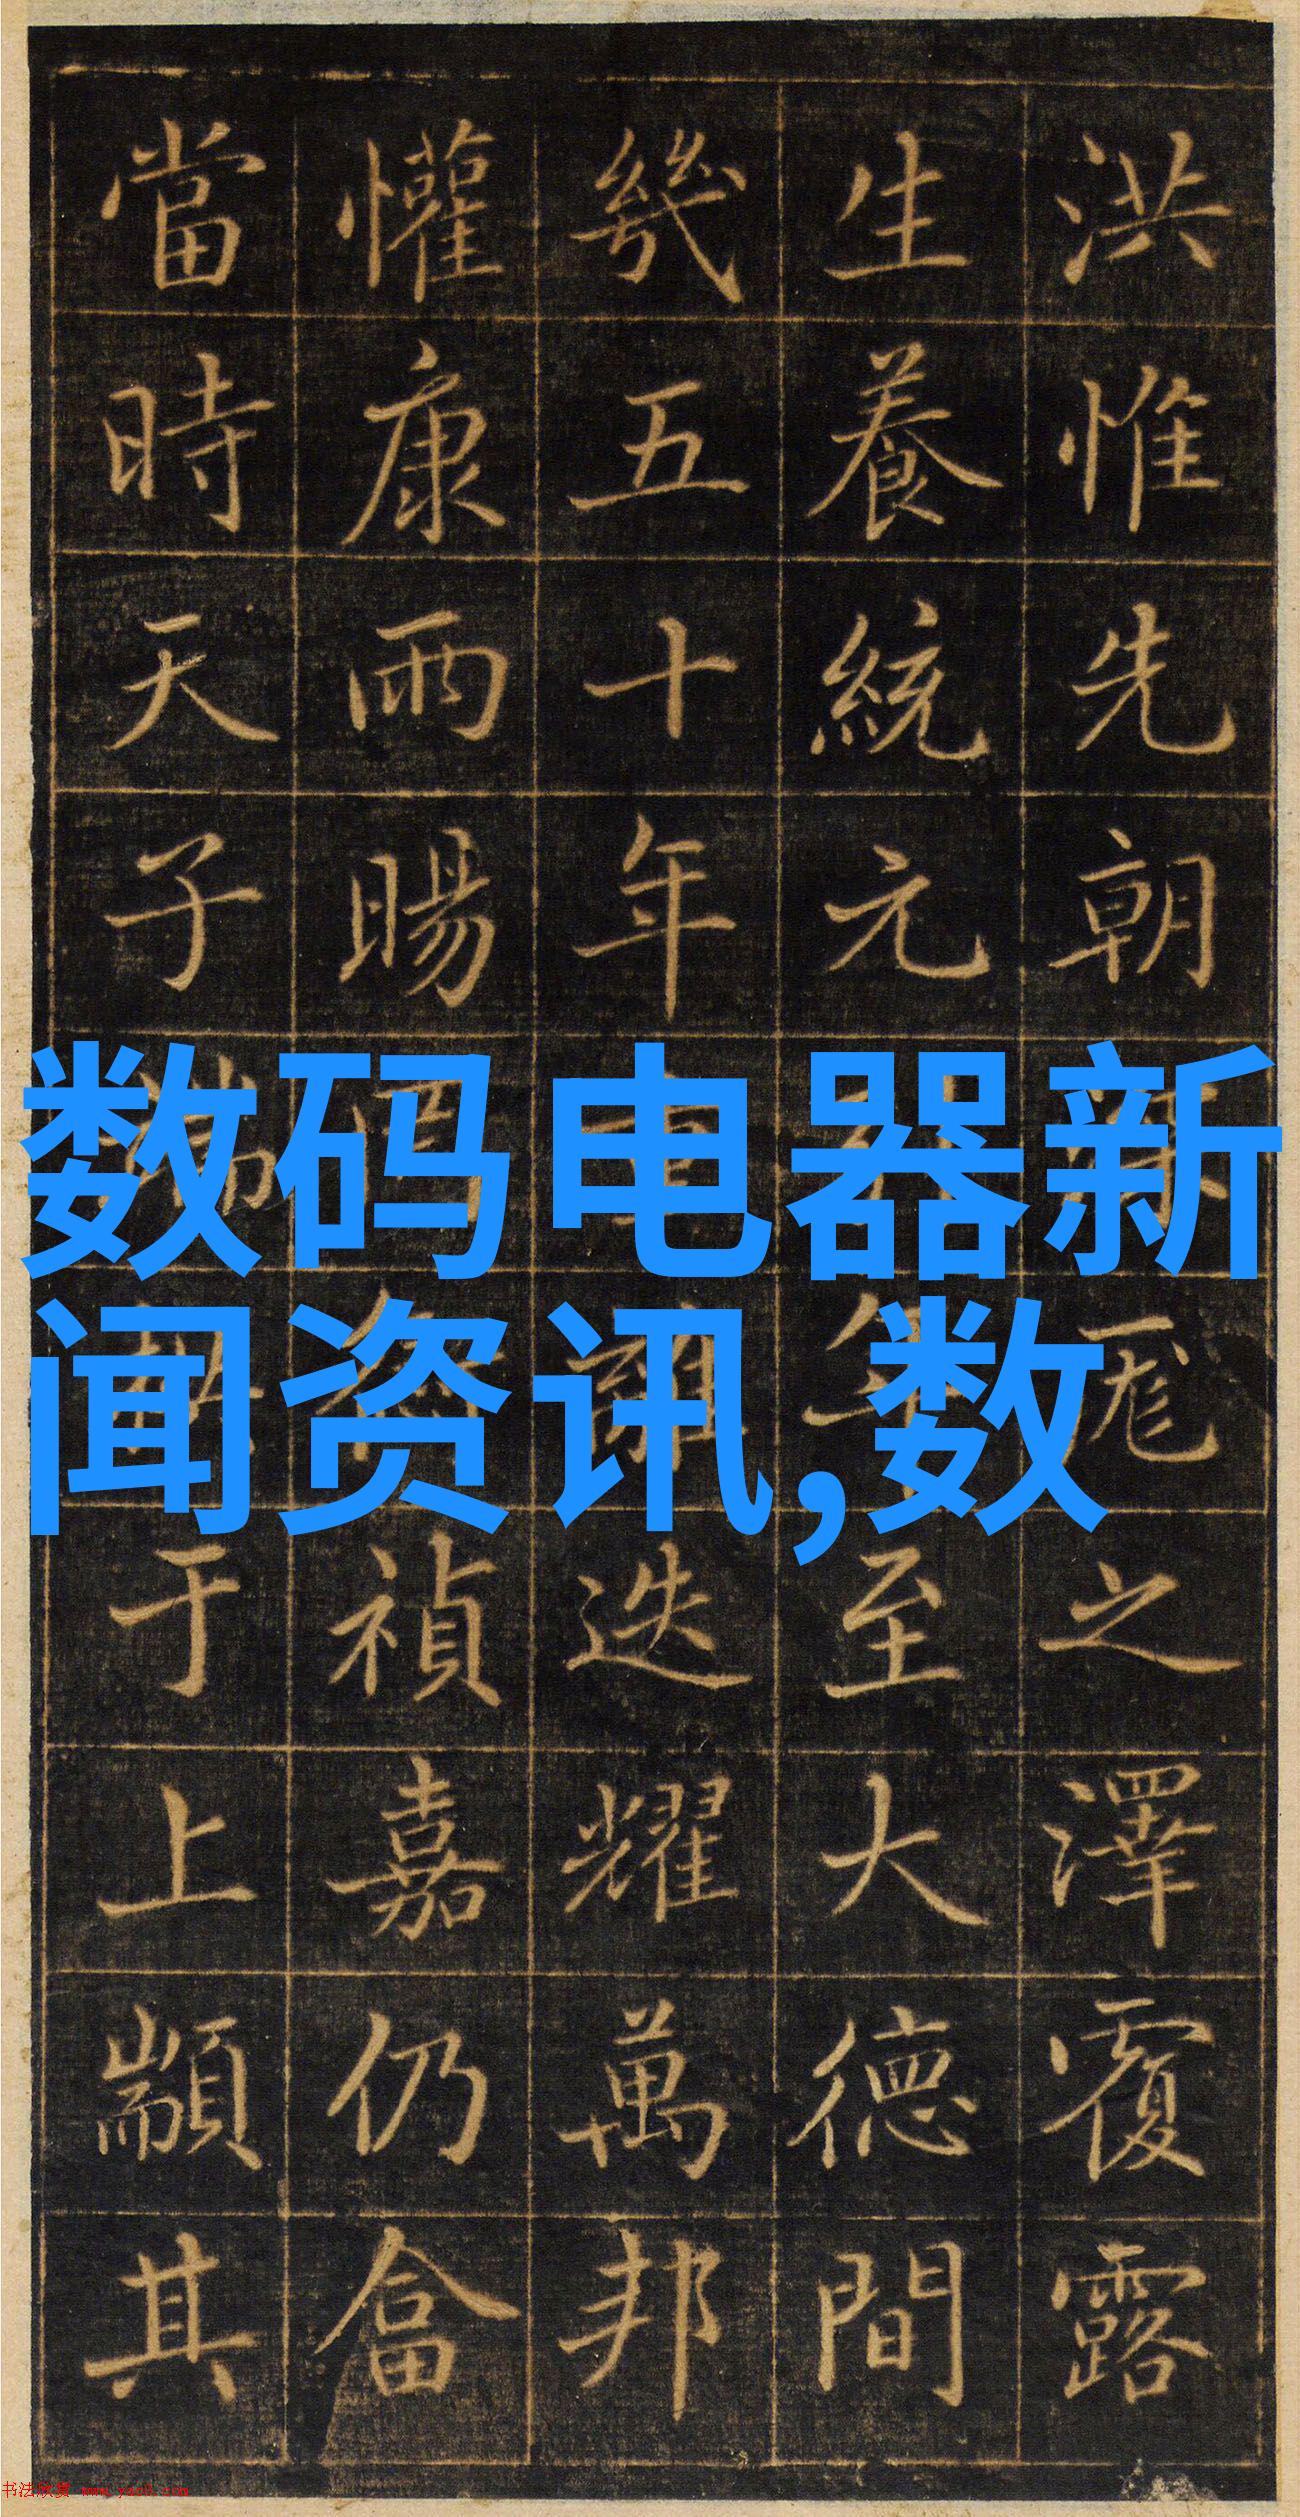 洪惟先朝厖之澤覆露
生養統元年至大德間
幾五十年重離迭耀萬邦
懽康雨暘禎嘉仍畣
當時天子端于上顒其
数码电器新
闻资讯,数
书法欣赏 www.yac8.com